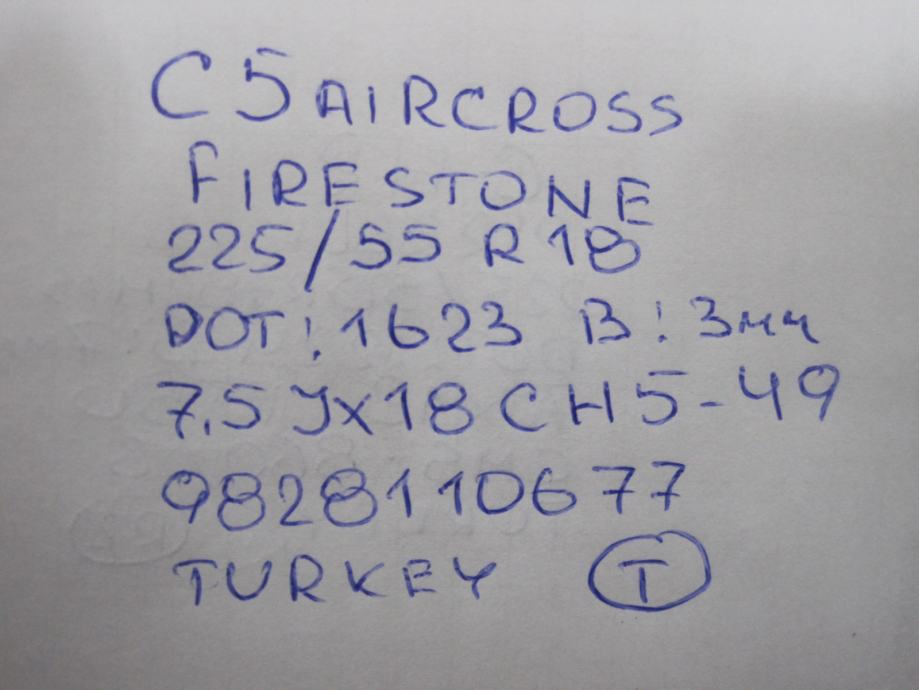 C5 AIRCROSS
FIRESTONE
225/55 R18
DOT: 1623 B: 3мм
7.5 Jx18 CH5-49
9828110677
TURKEY T